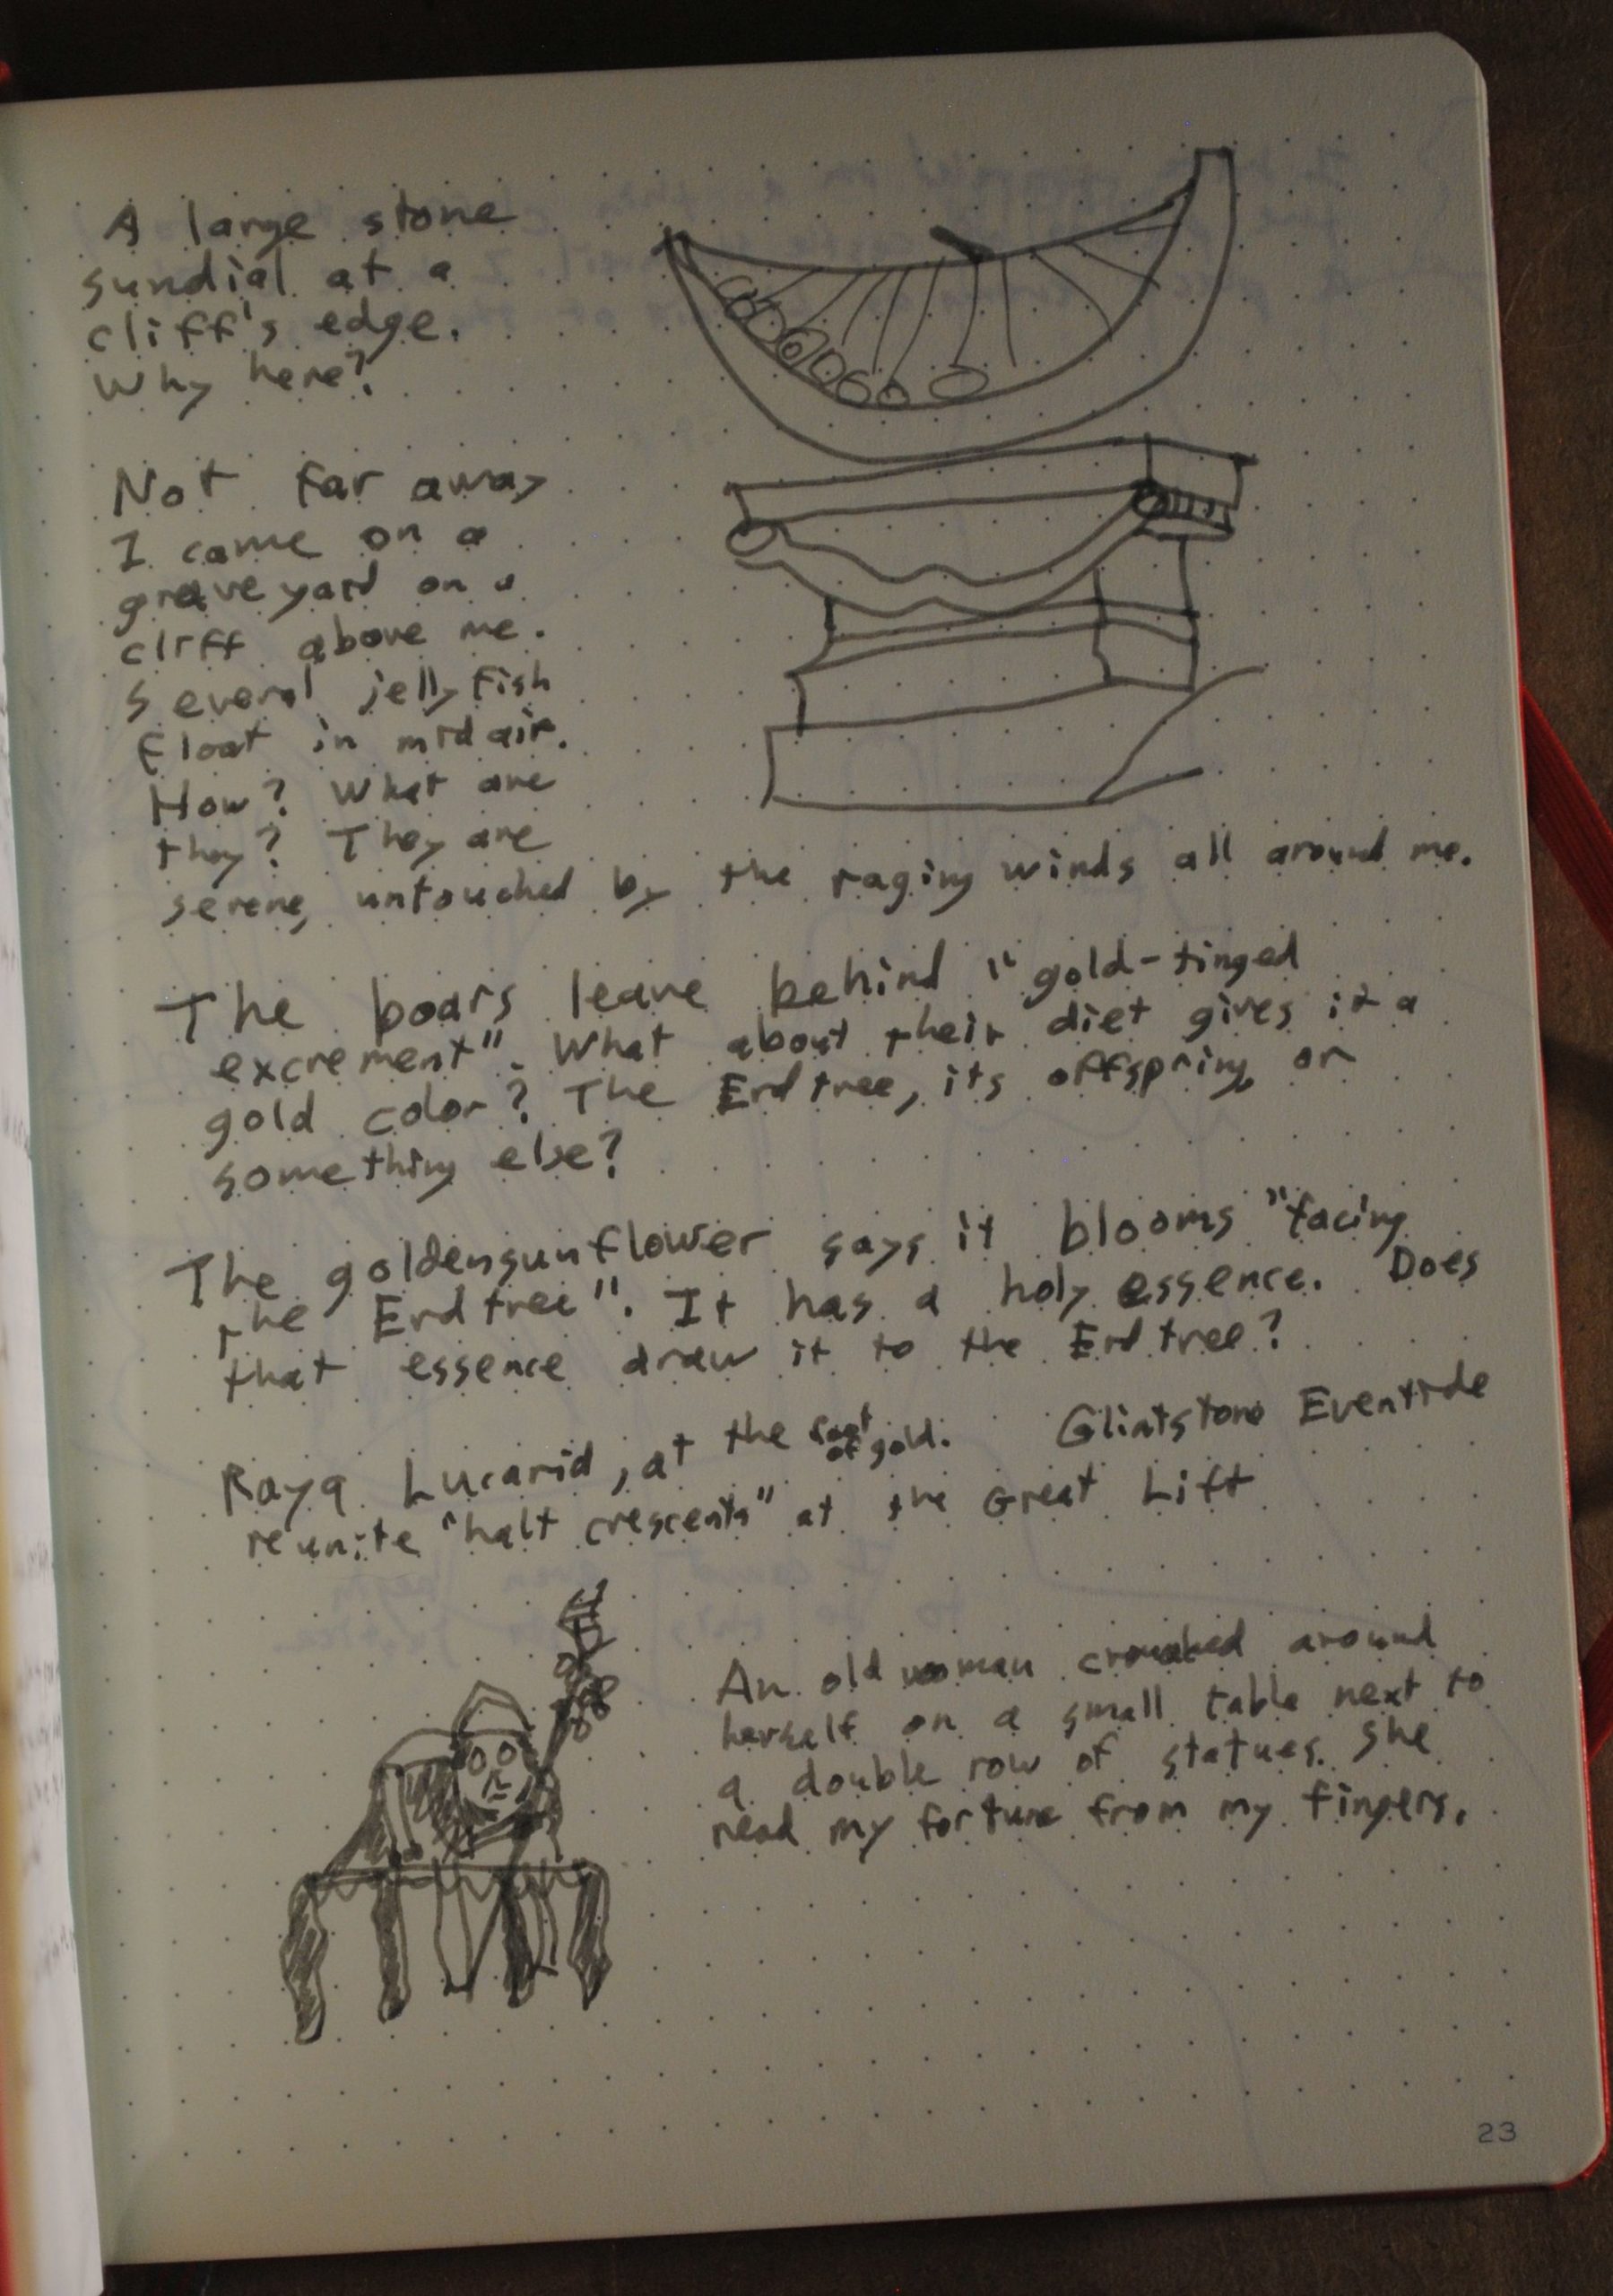 A large stone
sundial at a
cliff's edge.
Why here?
Not far away
I came on a
graveyard on a
cliff above me.
Several jellyfish
float in midair.
How? What are
they? They are
serene, untouched by the raging winds all around me.
The boars leave behind "gold-tinged
excrement". What about their diet gives it a
gold color? The Erdtree, its offspring, or
something else?
The goldensunflower says it blooms "facing
the Erdtree". It has a holy essence. Does
that essence draw it to the Erdtree?
Raya Lucarid, at the root of gold. Glintstone Eventide
reunite "half crescents" at the Great Lift
An old woman crouched around
herself on a small table next to
a double row of statues. She
read my fortune from my fingers.
23